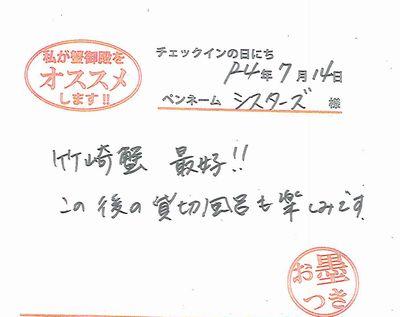 私が蟹御殿を
オススメ
します!!
チェックインの日にち
R4年7月14日
ペンネーム シスターズ 様
竹崎蟹 最好!!
この後の貸切風呂も楽しみです
お墨
つき